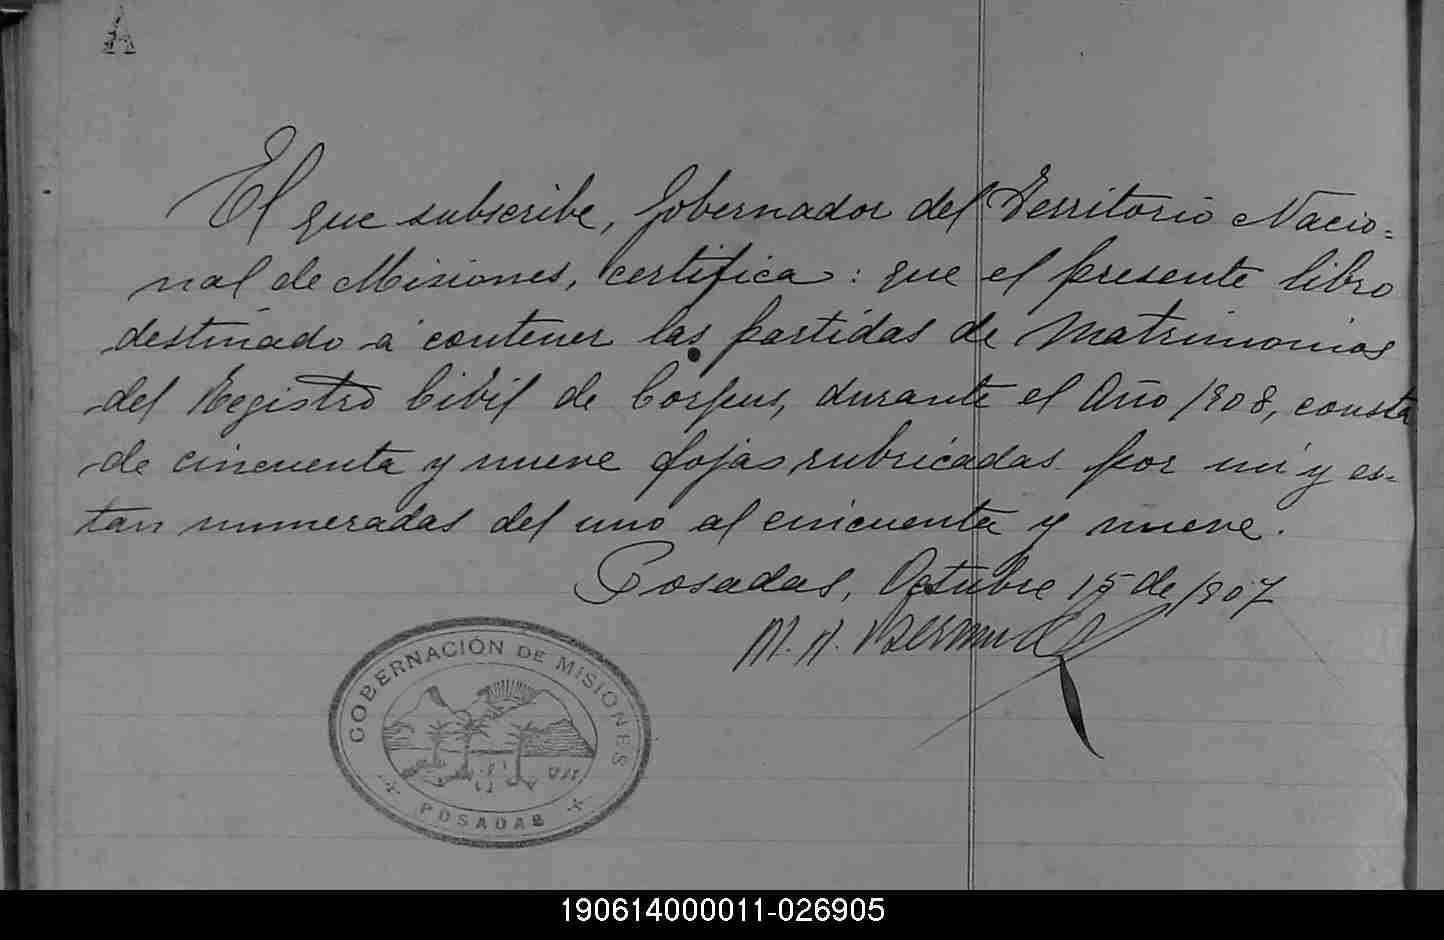 A
El que subscribe, Gobernador del Territorio Nacio=
nal de Misiones, certifica: que el presente libro
destinado á contener las partidas de Matrimonios
del Registro Cibil de Corpus, durante el Año 1908, consta
de cincuenta y nueve fojas rubricadas por mi y es-
tan numeradas del uno al cincuenta y nueve.
Posadas, Octubre 15 de 1907
M. A. Bermudez
GOBERNACIÓN DE MISIONES
POSADAS
190614000011-026905